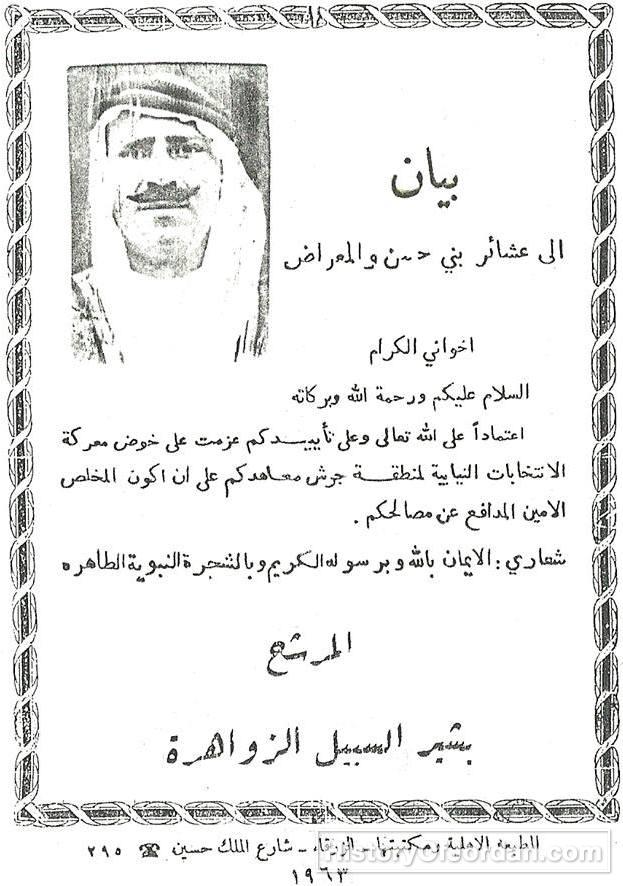 بيان
الى عشائر بني حسن والمعراض
اخواني الكرام
السلام عليكم ورحمة الله وبركاته
اعتماداً على الله تعالى وعلى تأييدكم عزمت على خوض معركة
الانتخابات النيابية لمنطقة جرش معاهدكم على ان اكون المخلص
الامين المدافع عن مصالحكم .
شعاري : الايمان بالله وبرسوله الكريم وبالشجرة النبوية الطاهره
المرشح
بشير السبيل الزواهرة
المطبعة الاهلية ومكتبتها - الزرقاء - شارع الملك حسين ☎ ٢٩٥
HistoryOfJordan.com
١٩٦٣